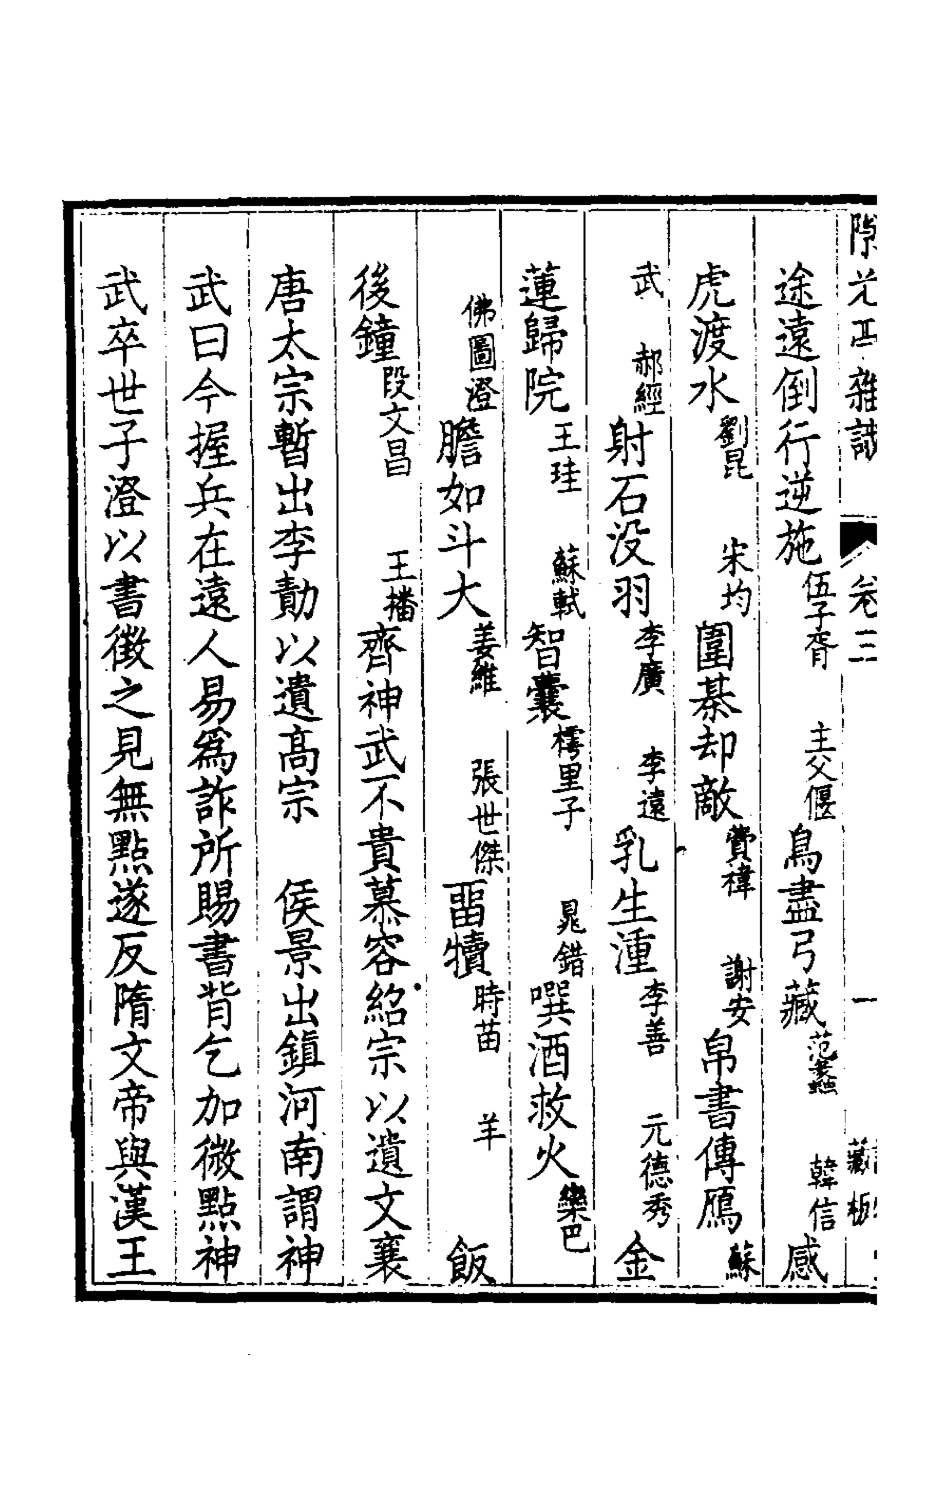 雜識 卷三 一 藏板
途遠倒行逆施伍子胥 主父偃鳥盡弓藏范蠡 韓信感
虎渡水劉昆 宋均圍棊却敵費禕 謝安帛書傳鴈蘇
武 郝經射石没羽李廣 李遠乳生湩李善 元德秀金
蓮歸院王珪 蘇軾智囊樗里子 晁錯噀酒救火欒巴
佛圖澄膽如斗大姜維 張世傑畱犢時苗 羊 飯
後鐘段文昌 王播齊神武不貴慕容紹宗以遺文襄
唐太宗暫出李勣以遺髙宗 侯景出鎮河南謂神
武曰今握兵在遠人易爲詐所賜書背乞加微點神
武卒世子澄以書徵之見無點遂反隋文帝與漢王